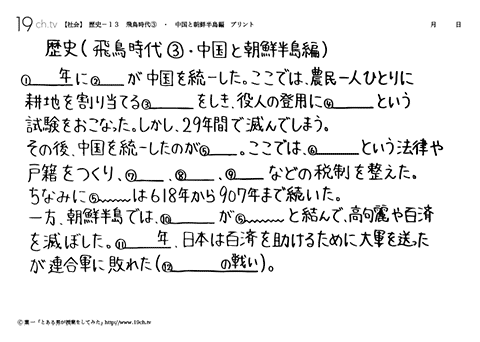 19ch.tv 【社会】 歴史－13 飛鳥時代③ ・ 中国と朝鮮半島編 プリント 月 日
歴史(飛鳥時代③・中国と朝鮮半島編)
①____年に②____が中国を統一した。ここでは、農民一人ひとりに
耕地を割り当てる③______をしき、役人の登用に④______という
試験をおこなった。しかし、29年間で滅んでしまう。
その後、中国を統一したのが⑤____。ここでは、⑥______という法律や
戸籍をつくり、⑦____、⑧____、⑨____などの税制を整えた。
ちなみに⑤____は618年から907年まで続いた。
一方、朝鮮半島では、⑩______が⑤____と結んで、高句麗や百済
を滅ぼした。⑪____年、日本は百済を助けるために大軍を送った
が連合軍に敗れた(⑫______の戦い)。
Ⓒ葉一「とある男が授業をしてみた」http://www.19ch.tv